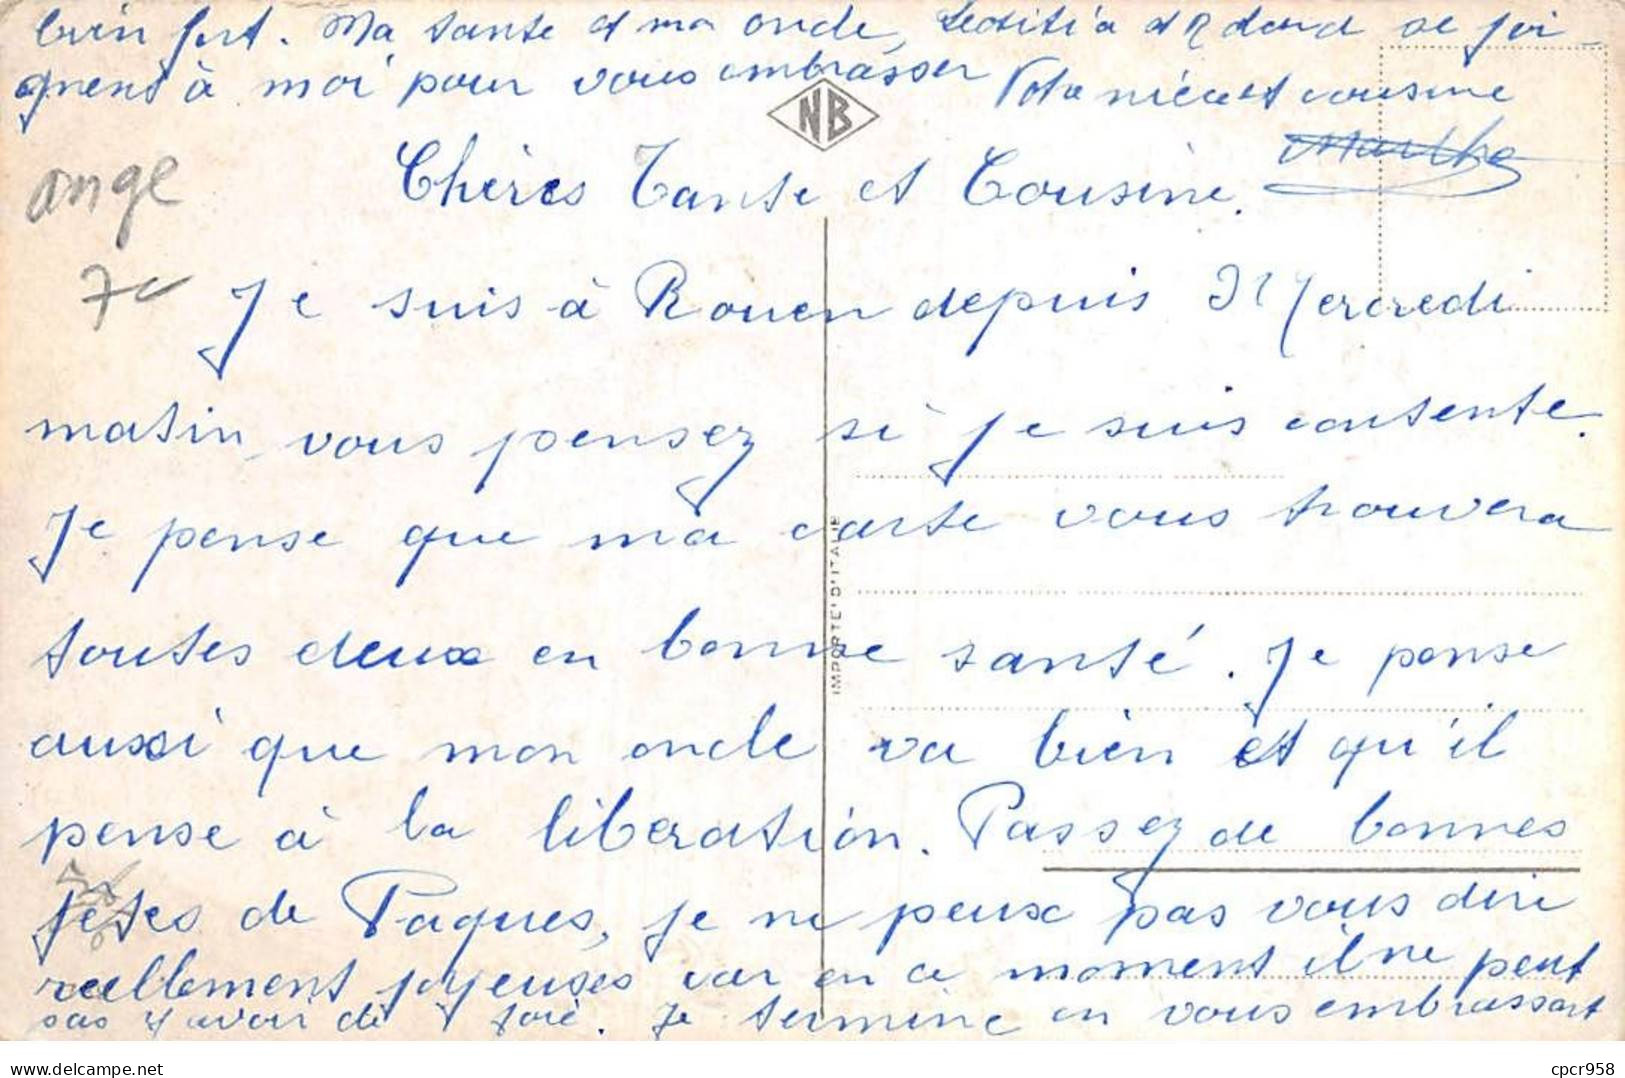 bien fort. Ma tante et mon oncle, Laetitia et se joi-
gnent à moi pour vous embrasser Votre nièce et cousine
NB
Marthe
ange
Chères Tante et Cousine.
Je suis à Rouen depuis Mercredi
matin, vous pensez si je suis contente.
Je pense que ma carte vous trouvera
toutes deux en bonne santé. Je pense
aussi que mon oncle va bien et qu'il
pense à la liberation. Passez de bonnes
fêtes de Paques, je ne peux pas vous dire
reellement joyeuses car en ce moment il ne peut
pas y avoir de joie. Je termine en vous embrassant
IMPORTE' D'ITALIE
Delcampe.net
cpcr958